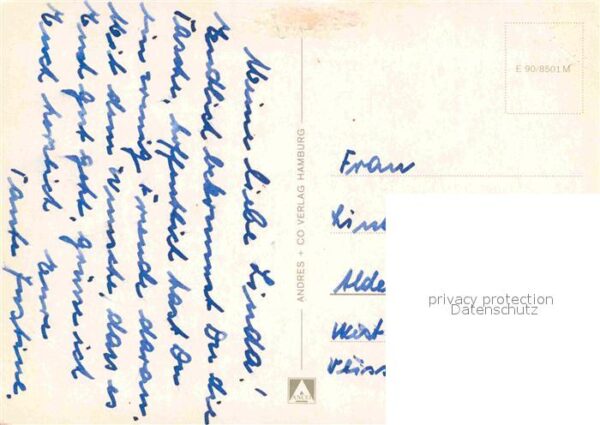 Meine liebe Linda!
Endlich bekommst Du die
Tasche, hoffentlich hast Du
ein wenig Freude daran.
Mit dem Wunsche, dass es
Euch gut geht, grüsse ich
Euch herzlich Eure
Tante Justine.
ANDRES + CO VERLAG HAMBURG
ANCO
E 90/8501 M
Frau
privacy protection
Datenschutz